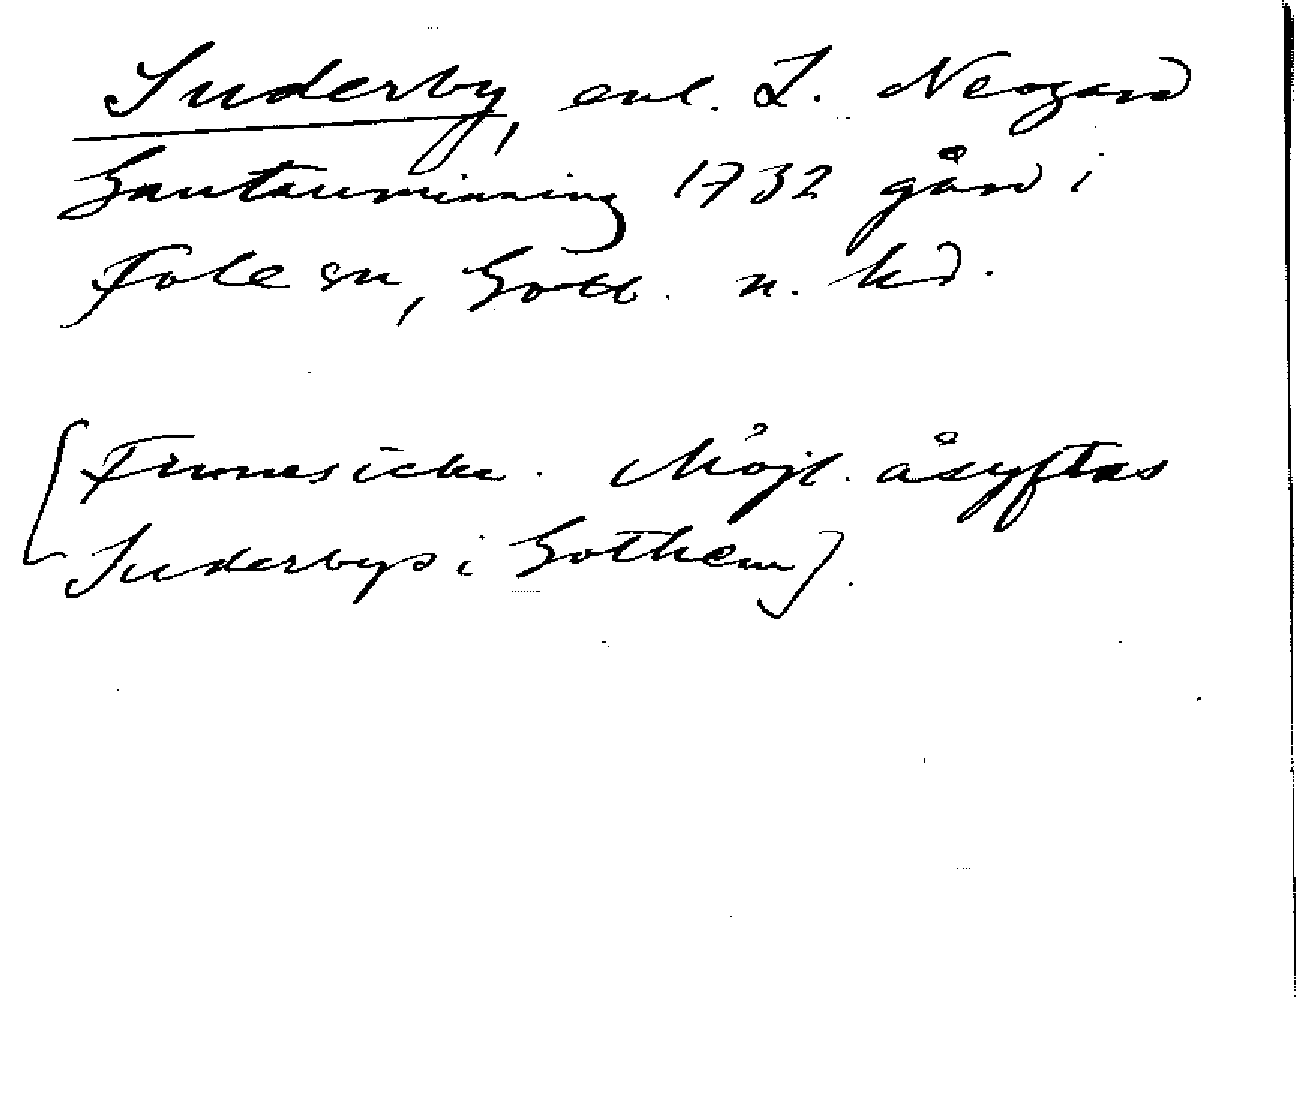 Suderby, enl. L. Neogard
Gautauminning 1732 gård i
Fole sn, Gotl. n. hd.
[Finnes icke. Möjl. åsyftas
Suderbys i Gothem].